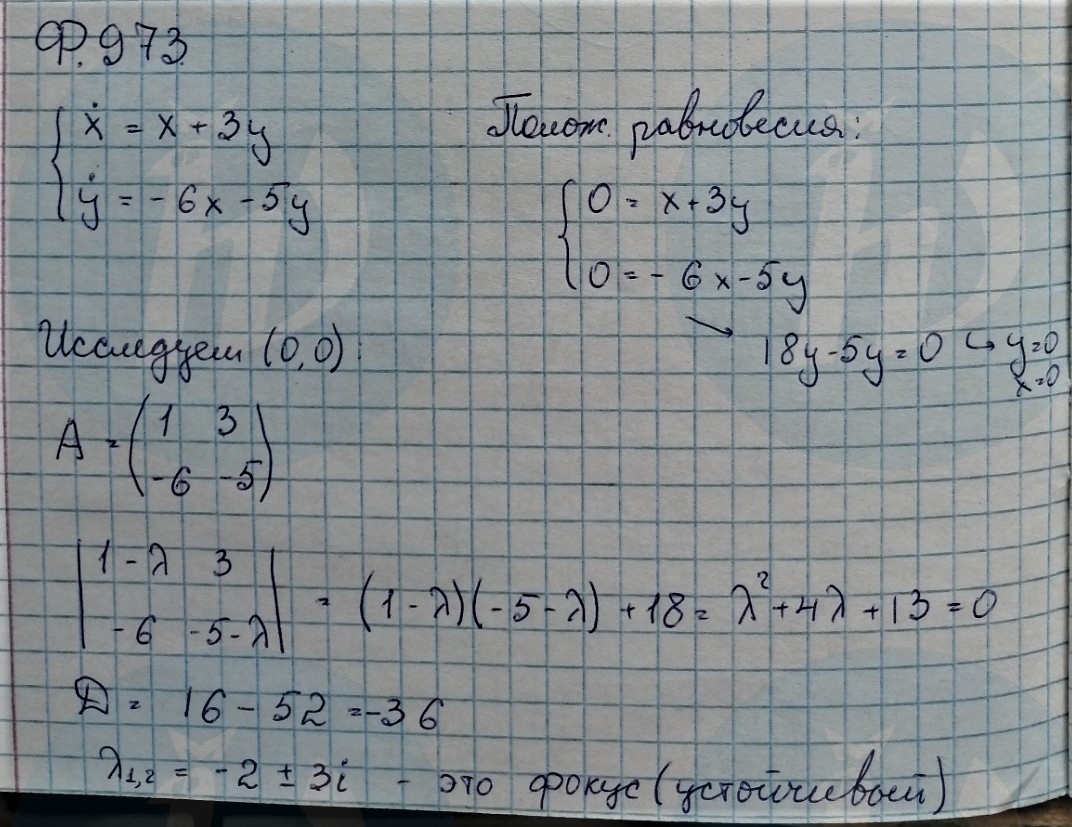 Ф. 973.
{ ẋ = x + 3y
{ ẏ = -6x - 5y
Полож. равновесия:
{ 0 = x + 3y
{ 0 = -6x - 5y
→ 18y - 5y = 0 ↪ y = 0
x = 0
Исследуем (0,0):
A = ( 1 3
-6 -5 )
| 1 - λ 3
-6 -5 - λ | = (1 - λ)(-5 - λ) + 18 = λ² + 4λ + 13 = 0
D = 16 - 52 = -36
λ₁,₂ = -2 ± 3i - это фокус (устойчивый)